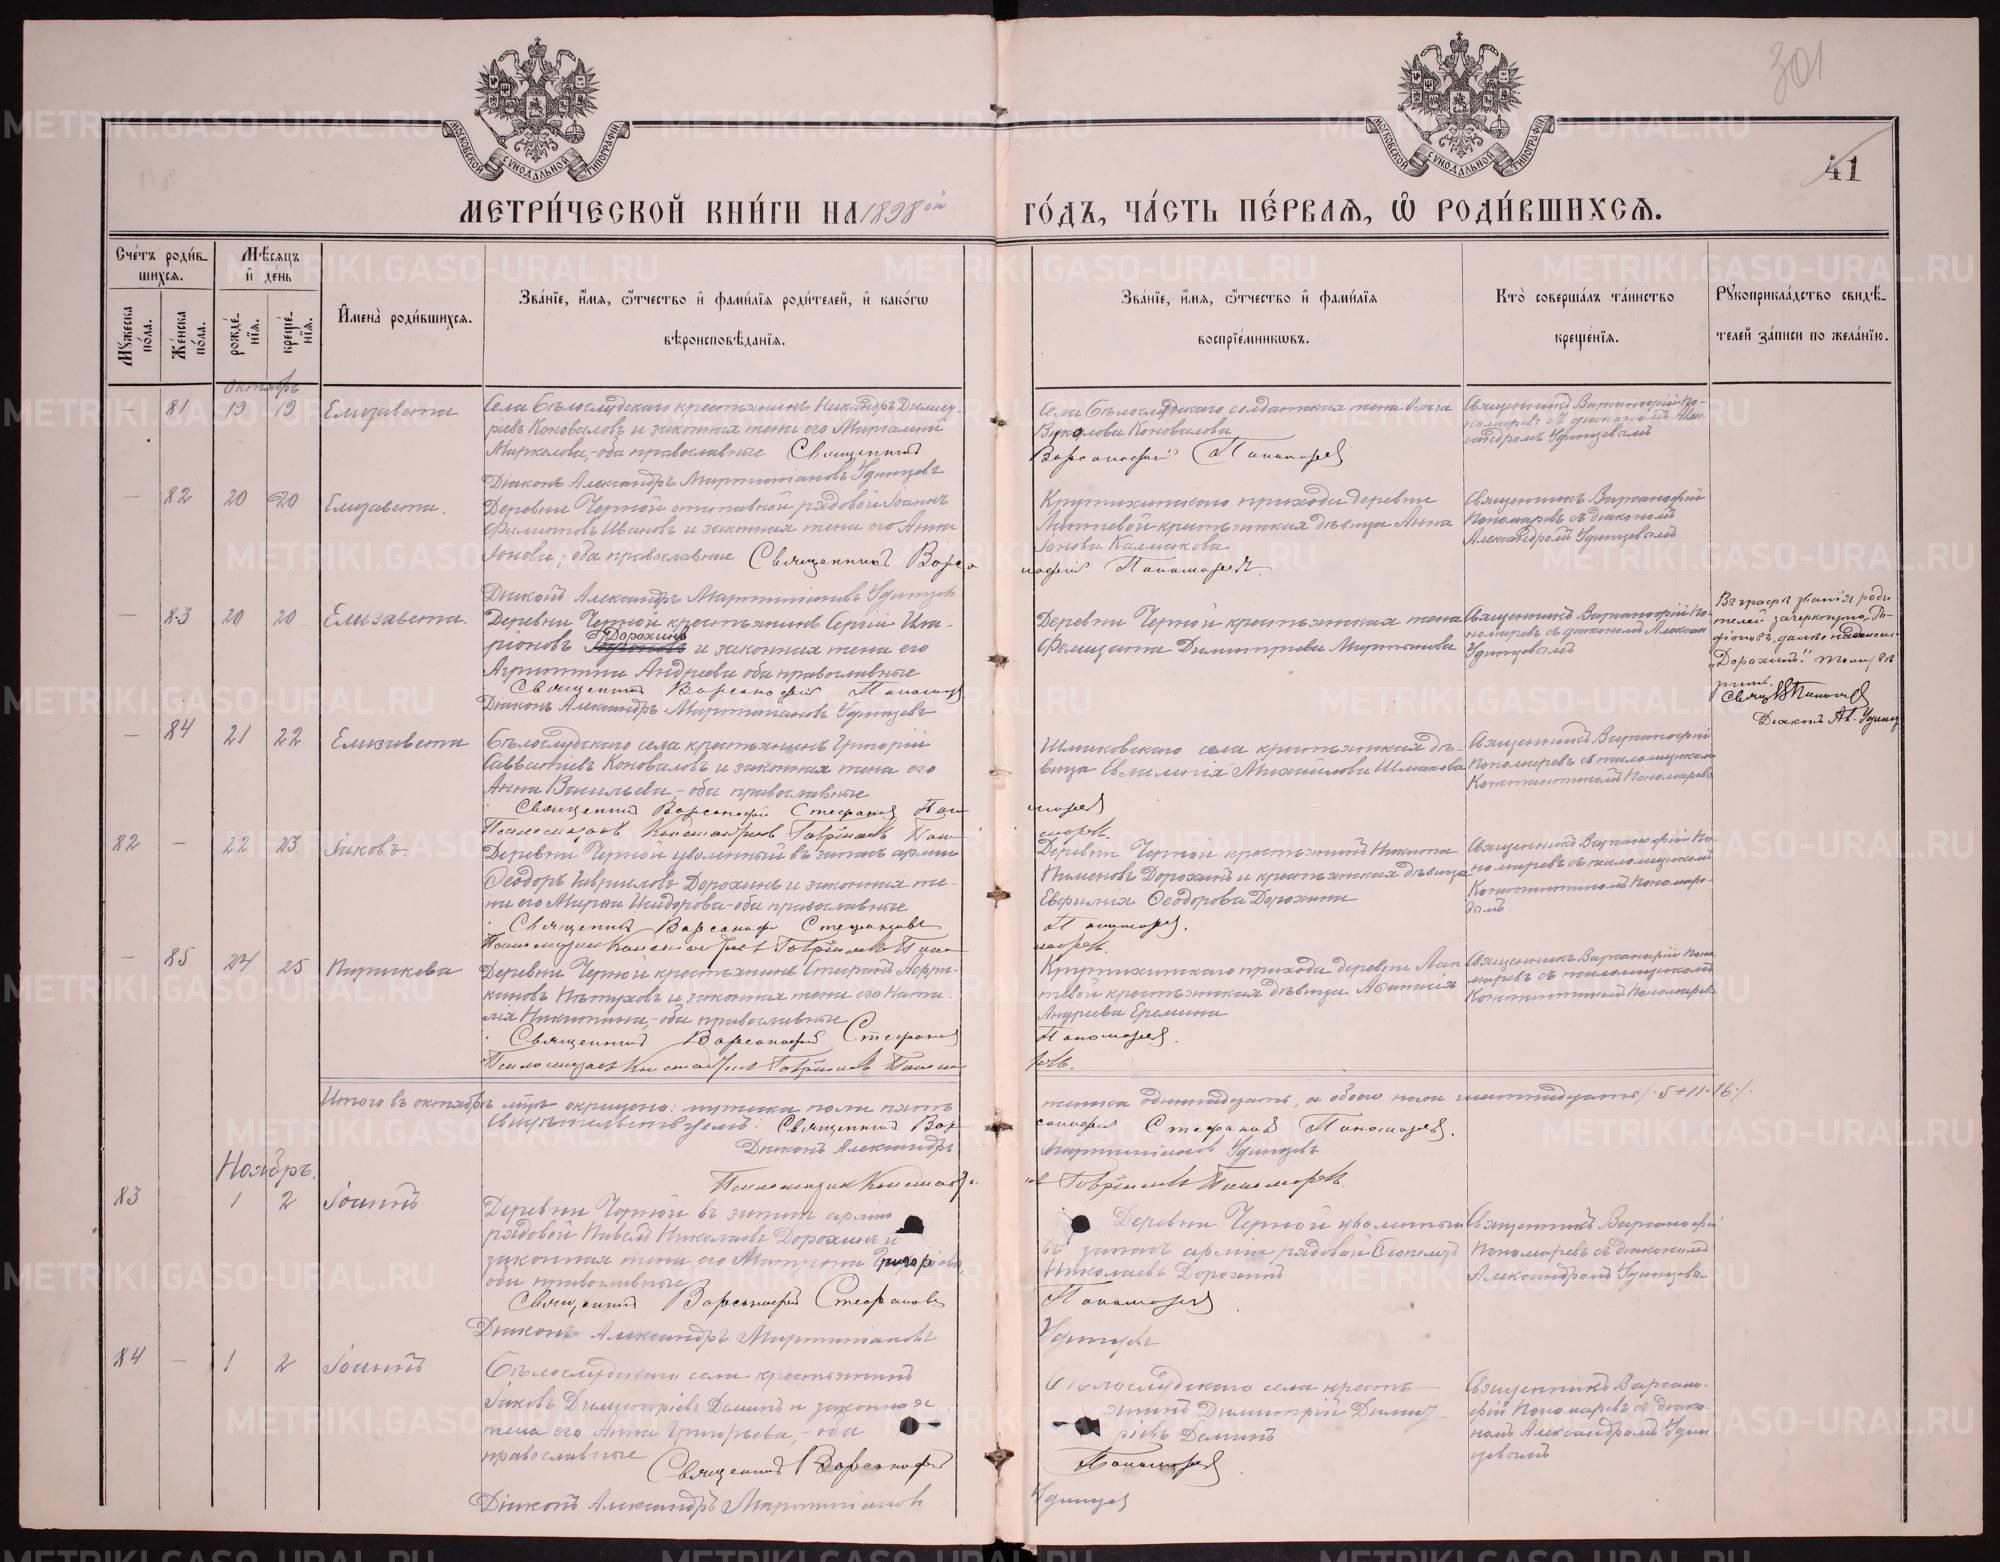 301
41
МОСКОВСКОЙ СѴНОДАЛЬНОЙ ТИПОГРАФІИ
МОСКОВСКОЙ СѴНОДАЛЬНОЙ ТИПОГРАФІИ
МЕТРИ́ЧЕСКОЙ КНИ́ГИ НА 1898ой ГО́ДЪ, ЧА́СТЬ ПЕ́РВАѦ, Ѡ҆ РОДИ́ВШИХСѦ.
Сче́тъ роди́вшихсѧ.
Мѣ́сѧцъ и҆ де́нь
Мꙋ́жеска по́ла.
Же́нска по́ла.
рожде́нїѧ.
креще́нїѧ.
И҆мена̀ роди́вшихсѧ.
Зва́нїе, и҆́мѧ, ѻ҆́тчество и҆ фами́лїѧ роди́телей, и҆ како́гѡ
вѣроисповѣ́данїѧ.
Зва́нїе, и҆́мѧ, ѻ҆́тчество и҆ фами́лїѧ
воспрїе́мникѡвъ.
Кто̀ соверша́лъ та́инство
креще́нїѧ.
Рꙋкоприкла́дство свидѣ́-
телей за́писи по жела́нїю.
Октябрь
— 81 19 19 Елизавета
Села Бѣлослудскаго крестьянинъ Никандръ Димит-
ріевъ Коноваловъ и законная жена его
Маркелова, оба православные Священникъ
Діаконъ Александръ Мартиніановъ Удинцевъ
Села Бѣлослудскаго солдатская жена
Вуколова Коновалова
Варсанофій Пономаревъ
Священникъ Варсанофій По-
номаревъ съ діакономъ Алек-
сандромъ Удинцевымъ
— 82 20 20 Елизавета.
Деревни Черной рядовой Іоаннъ
Филипповъ Ивановъ и законная жена его Анна
Іонова, оба православные Священникъ Варса
Крутихинскаго прихода деревни
крестьянская дѣвица Анна
Іонова Калмакова
нофій Пономаревъ
Священникъ Варсанофій
Пономаревъ съ діакономъ
Александромъ Удинцевымъ
Діаконъ Александръ Мартиніановъ Удинцевъ
— 83 20 20 Елизавета.
Деревни Черной крестьянинъ Сергій Ила-
ріоновъ Дорохинъ и законная жена его
Агриппина Андреева оба православные
Священникъ Варсанофій Пономаревъ
Діаконъ Александръ Мартиніановъ Удинцевъ
Деревни Черной крестьянская жена
Димитріева Мартынова
Священникъ Варсанофій По-
номаревъ съ діакономъ Алексан
Удинцевымъ
Въ графѣ званія роди
телей зачеркнуто
„Дорохинъ"
Діаконъ Ал. Удинц
— 84 21 22 Елизавета
Бѣлослудскаго села крестьянинъ Григорій
Савватіевъ Коноваловъ и законная жена его
Анна Васильева, оба православные
Священникъ Варсанофій Стефановъ Поно
Псаломщикъ Константинъ Гавріиловъ Поно-
Шмаковскаго села крестьянская дѣ-
вица Евлампія Михайлова Шмакова
маревъ
маревъ.
Священникъ Варсанофій
Пономаревъ съ псаломщикомъ
Константиномъ Пономаревымъ
82 — 22 23 Іаковъ.
Деревни Черной уволенный въ запасъ арміи
Ѳеодоръ Гавриловъ Дорохинъ и законная же-
на его Марѳа Исидорова оба православные
Священникъ Варсанофій Стефановъ
Псаломщикъ Константинъ Гавріиловъ Поно
Деревни Черной крестьянинъ Никита
Пименовъ Дорохинъ и крестьянская дѣвица
Евфимія Ѳеодорова Дорохина
Пономаревъ.
маревъ.
Священникъ Варсанофій По-
номаревъ съ псаломщикомъ
Константиномъ Пономаре-
вымъ.
— 85 24 25 Параскева
Деревни Черной крестьянинъ Стефанъ Африка-
кановъ Пѣтуховъ и законная жена его Ната-
лія Никитина, оба православные
Священникъ Варсанофій Стефановъ
Псаломщикъ Константинъ Гавріиловъ Поно
Крутихинскаго прихода деревни Лап
тевой крестьянская дѣвица Аѳанасія
Андреева Еремина
Пономаревъ.
Священникъ Варсанофій Поно
маревъ съ псаломщикомъ
Константиномъ Пономарев
Итого въ октябрѣ мцѣ окрещено: мужска пола пять
женска одиннадцать, а обоего пола шестнадцать /. 5+11=16 /.
Свидѣтельствуемъ: Священникъ Вар-
санофій Стефановъ Пономаревъ.
Діаконъ Александръ
Мартиніановъ Удинцевъ
Псаломщикъ Константи
нъ Гавріиловъ Пономаревъ.
Ноябрь.
83 — 1 2 Іоаннъ
Деревни Черной въ запасѣ арміи
рядовой Николаевъ Дорохинъ и
законная жена его Матрона Григорьева,
оба православные
Священникъ Варсанофій Стефановъ
Діаконъ Александръ Мартиніановъ
Деревни Черной уволенный
въ запасъ арміи рядовой
Николаевъ Дорохинъ
Пономаревъ.
Удинцевъ
Священникъ Варсанофій
Пономаревъ съ діакономъ
Александромъ Удинцевы
84 — 1 2 Іоаннъ
Бѣлослудскаго села крестьянинъ
Іаковъ Димитріевъ Деминъ и законная
жена его Анна Григорьева, оба
православные Священникъ Варсанофій
Діаконъ Александръ Мартиніановъ
Бѣлослудскаго села кресть-
янинъ Димитрій Димит-
ріевъ Деминъ
Пономаревъ.
Удинцевъ
Священникъ Варсано-
фій Пономаревъ съ діако-
номъ Александромъ Удин
цевымъ
METRIKI.GASO-URAL.RU